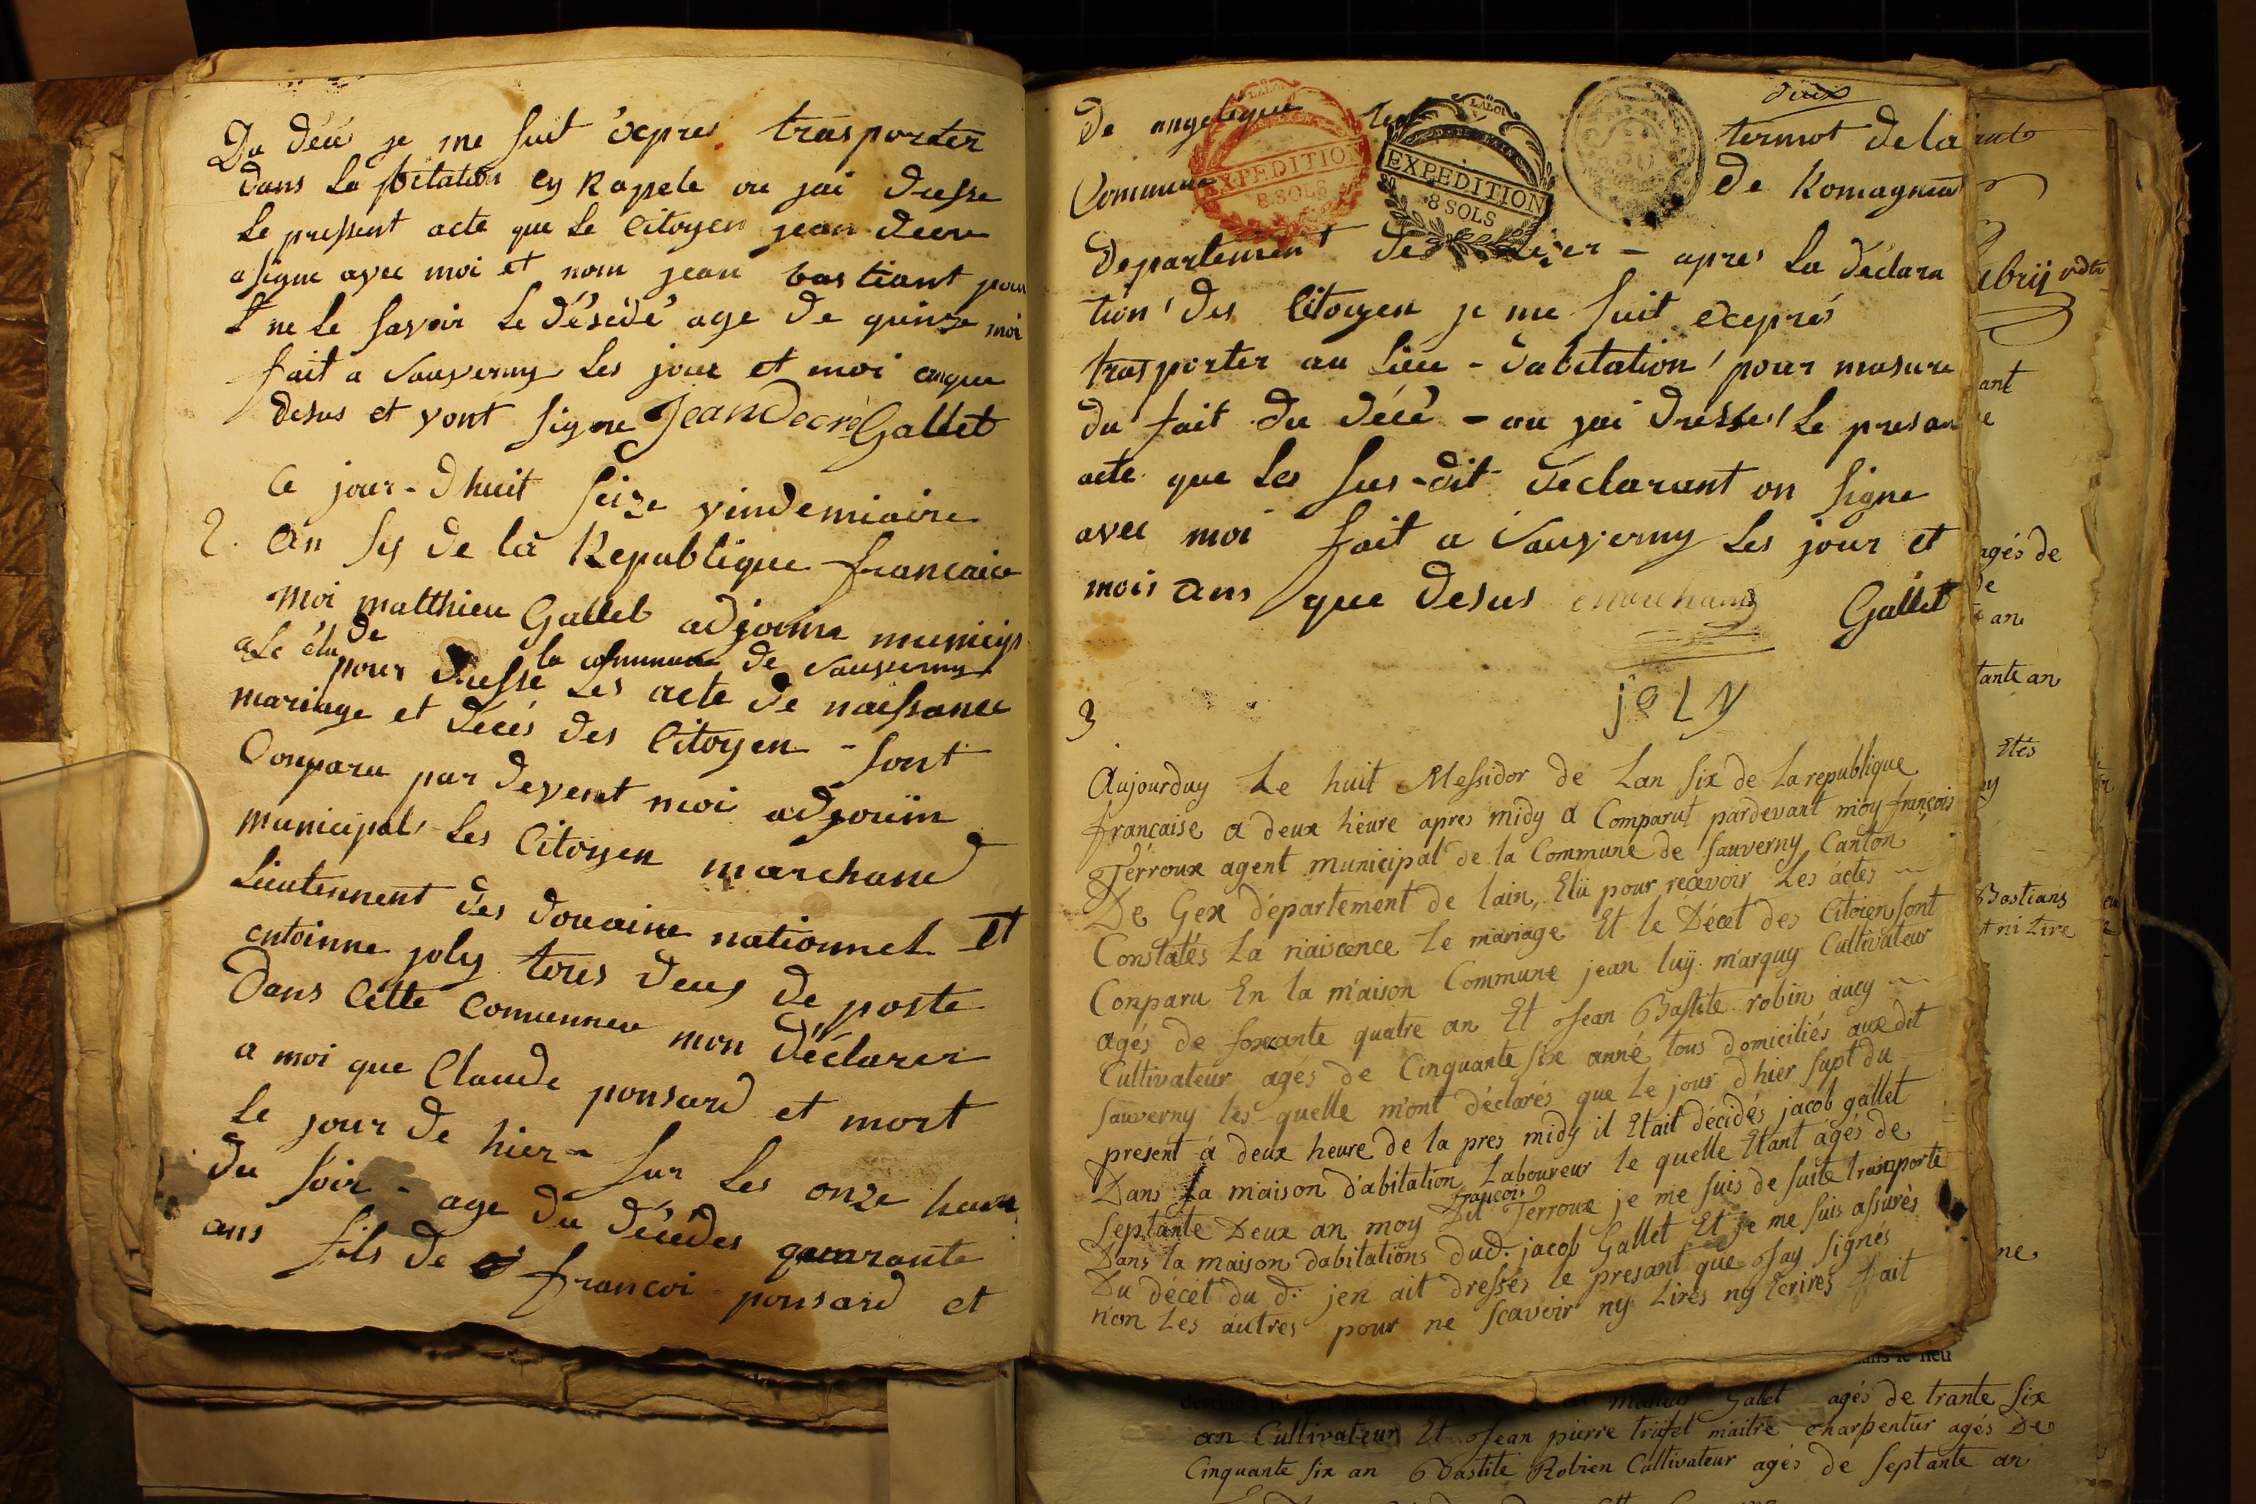 Du décé je me suit éxpres trasporter
dans la bitation cy Rapele ou jai dresse
Le pressent acte que Le Citoyen jean decre
a signe avec moi et nom jean bastiant pour
ne Le savoir Le désedé age de quinze moi
fait a Sauverny Les jour et moi enque
desus et vont signe Jean Decré Gallet
Ce jour-dhuit seize vindemiaire
2. an sis de la Republique francaice
Moi matthieu Gallet adjoint municip
ale élu de la commune de Sauverny
pour dresse Les acte de naissance
mariage et déces des Citoyen - sont
Conparu par devent moi adjoint
municipal Les Citoyen marchand
Lieutennent des douaine nationnel et
entoinne joly tous deus de poste
dans Cette Comunne mon déclarer
a moi que Claude ponsard et mort
Le jour de hier - sur Les onze heure
du soir - age du décédes quarante
ans fils de francoi ponsard et
deux
de angelique termot de la
Commune de Romagnieu
LALOI
EXPEDITION
8 SOLS
LALOI
EXPEDITION
8 SOLS
Departement de Liser - apres La déclara
tion des Citoyen je me suit éxprés
trasporter au Lieu - dabitation pour masure
du fait du décé - ou jai dresse Le presan
acte que Les sus-dit déclarant on signe
avec moi fait a Sauverny Les jour et
mois ans que desus marchand Gallet
joly
3
Aujourduy Le huit Messidor de Lan six de La republique
française a deux héure apres midy a Comparut pardevant moy françois
Terroux agent municipal de la Commune de Sauverny Canton
De Gex département de lain, Elü pour recevoir Les áctes
Constatés La naiscence Le mariage Et le Décet des Citoien sont
Conparu En la maison Commune jean luÿ marquy Cultivateur
agés de soixante quatre an Et Jean Bastite robin aucy
Cultivateur agés de Cinquante six anné tous domiciliés aux dit
Sauverny les quelle m'ont déclarés que Le jour d'hier supt du
present á deux heure de la pres midy il Etait décidés jacob gallet
Dans sa maison d'abitation Laboureur le quelle Etant agés de
septante Deux an moy Dit françois Terroux je me suis de suite transporte
Dans la maison dabitations dud. jacob Gallet Et je me suis assurés
Du décet du d. jen ait dressés le presant que Jay signés
non Les áutres pour ne scavoir ny Lires ny Ecrires fait
ant
agés de
de
an
tante an
Etés
Bastians
ni Lire
Galet agés de trante six
an Cultivateur Et Jean pierre trüfet maitre charpentier agés De
Cinquante six an Bastite Robien Cultivateur agés de septante an